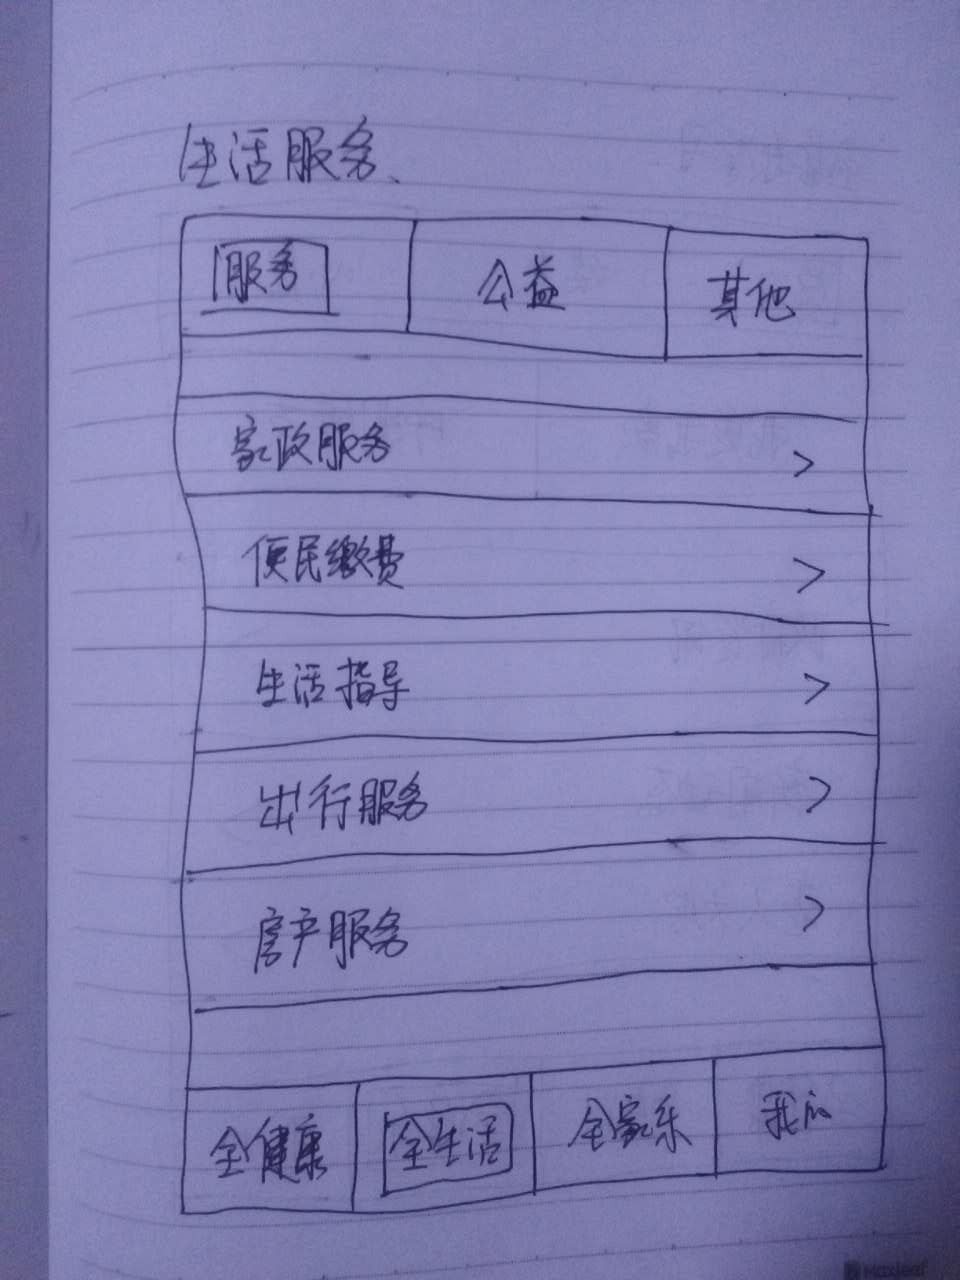 生活服务、
服务 公益 其他
家政服务 >
便民缴费 >
生活指导 >
出行服务 >
房产服务 >
全健康 全生活 全家乐 我的
Maxleaf